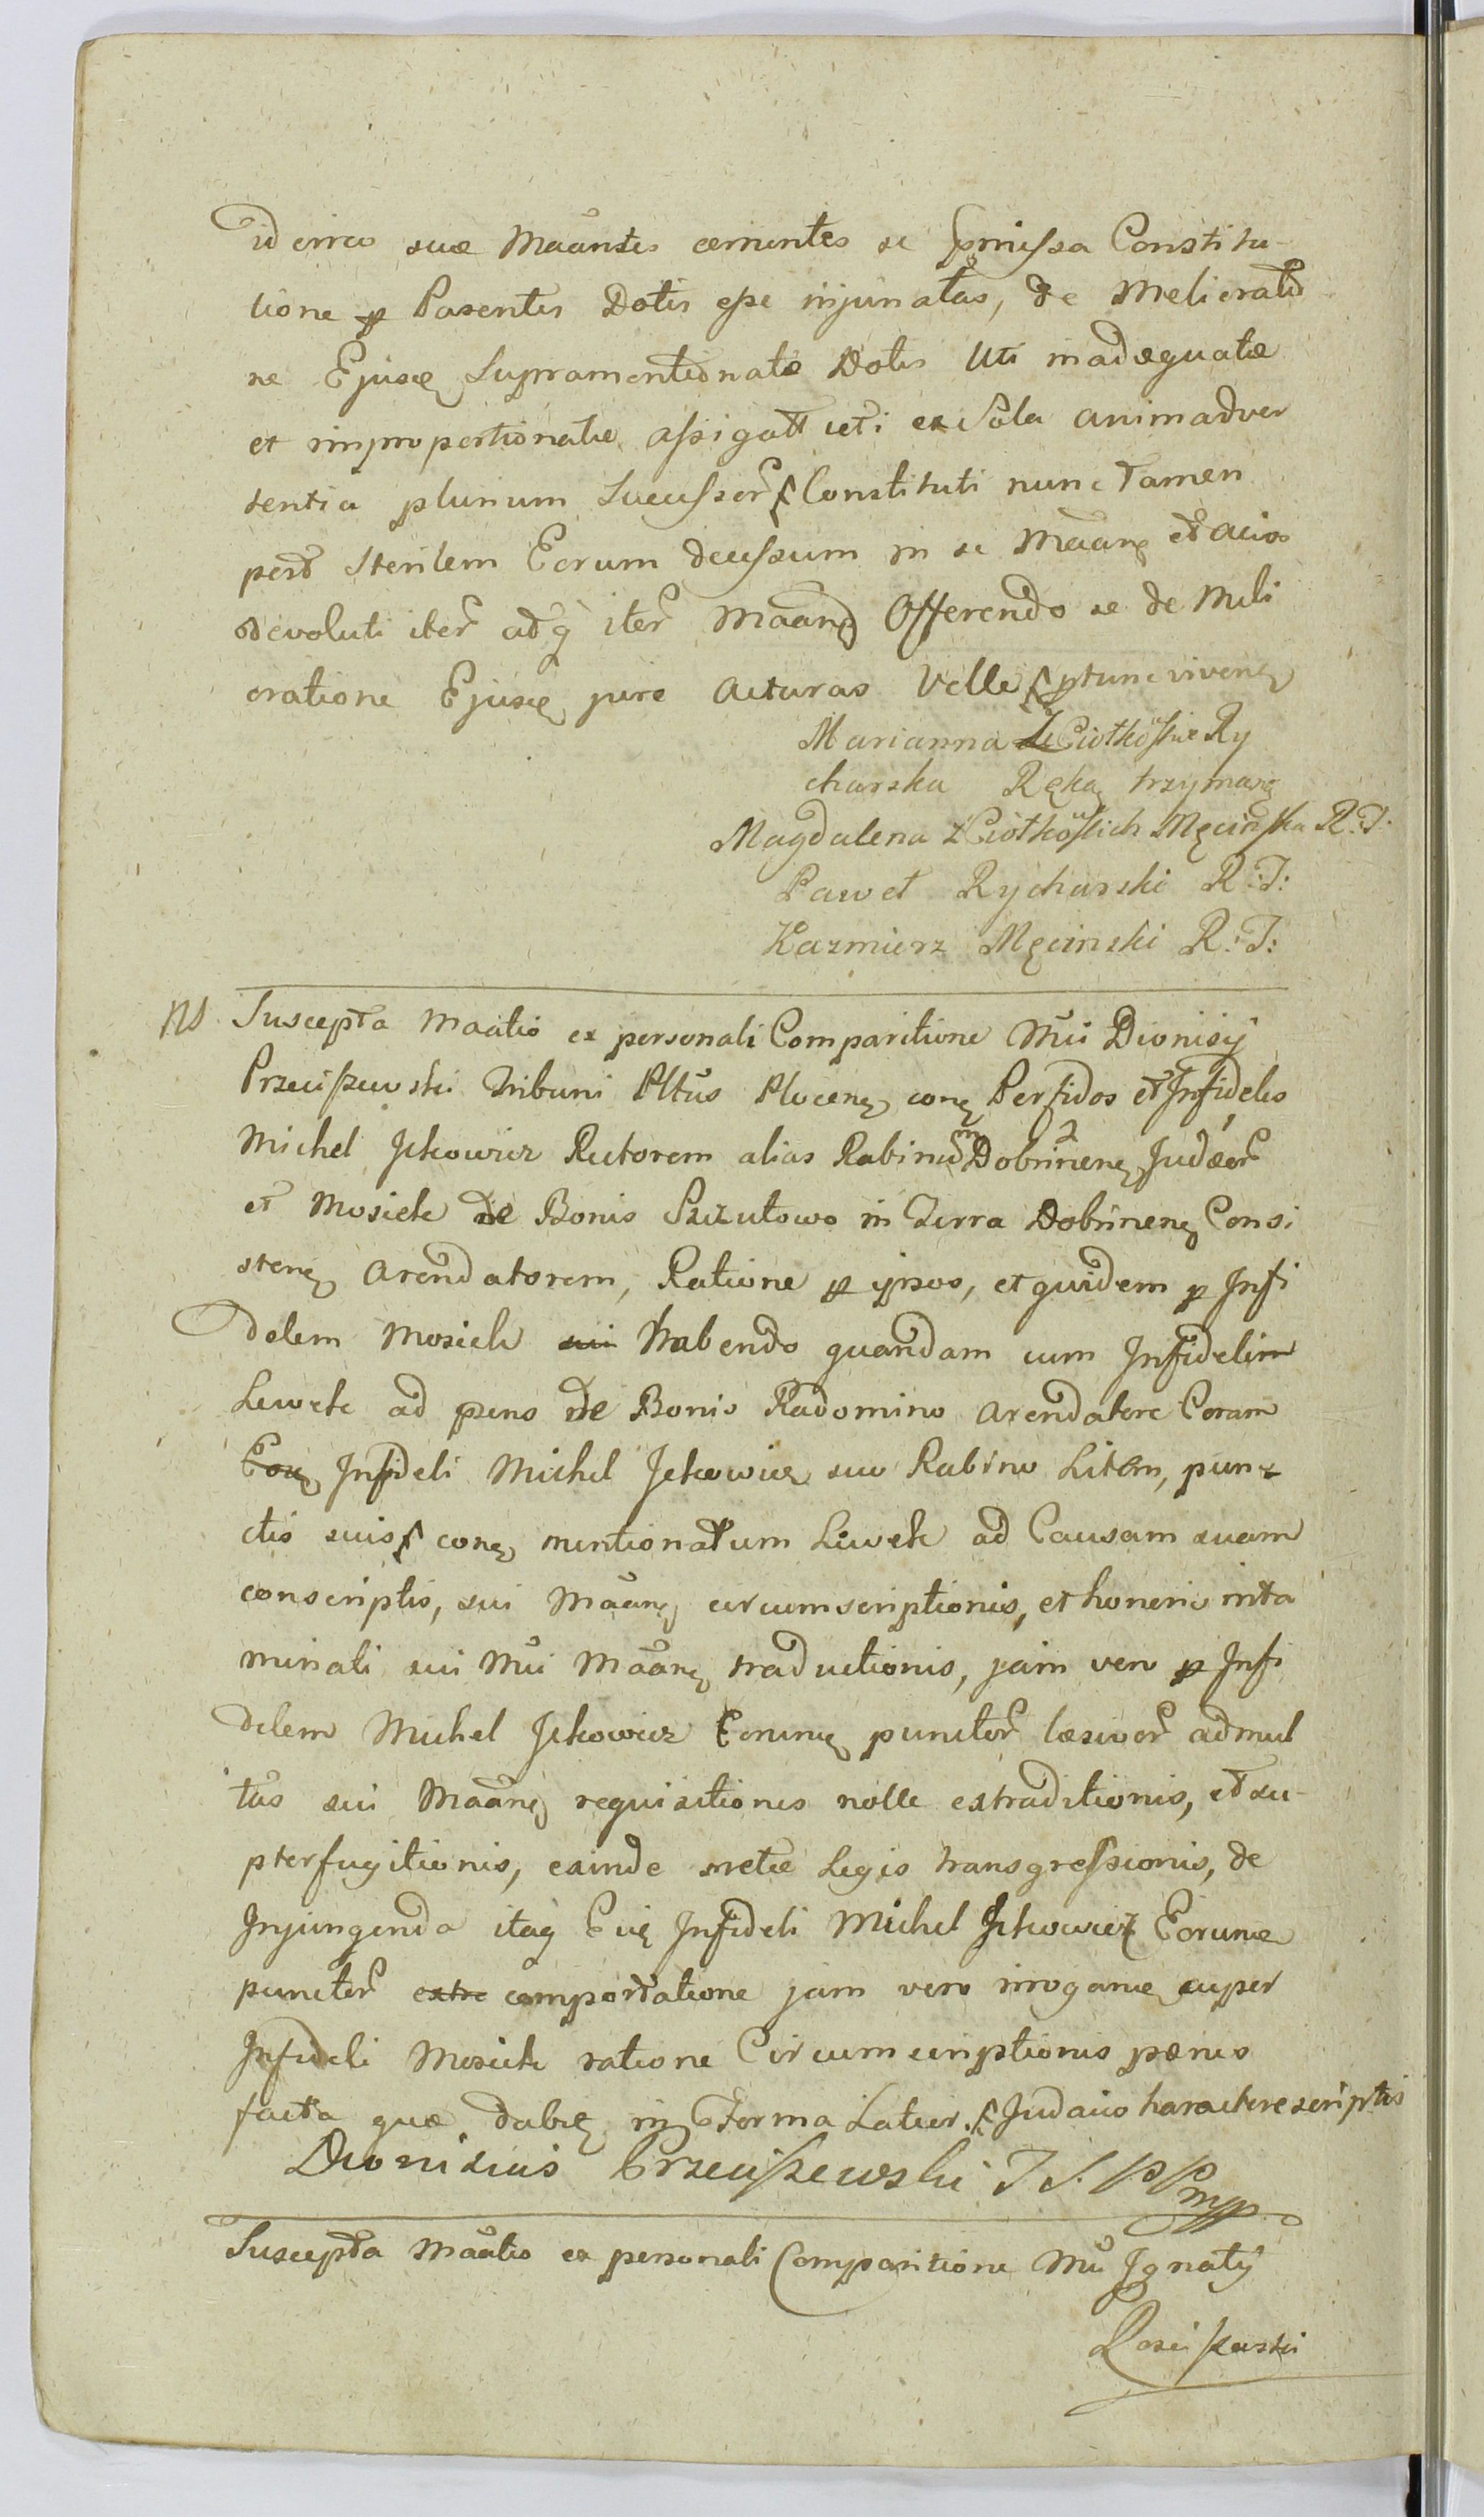 id circo suæ Maantes cernentes se præmissa Constitu-
tione p Parentes Dotis esse injunatas, de Melioratio
ne Ejusdę Supramentionatæ Dotis Uti inadæquatæ
et improportionatæ assigatt uti ex Sola animadver
tentia plurium Sucessor Constituti nunc Tamen
post sterilem Eorum decessum in se Maanę et alios
devoluti iter adq iter Maanę Offerendo se de Meli
oratione Ejusdę jure Acturas Velle ptunc vivenę
Marianna Z Ciołkoskie Ry
charska Ręką trzymaną
Magdalena z Ciołkoskich Męcinska R:T:
Paweł Rycharski R:T:
Kazmierz Męcinski R:T:
NS Suscepta Maatio ex personali Comparitione Mci Dionisÿ
Przeciszewski Tribuni Pltus Plocenę conę Perfidos et Infideles
Michel Jckowicz Rectorem alias Rabinum Dobrinenę Judæor
et Mosiek de Bonis Szczutowo in Terra Dobrinenę Consi
stenę Arendatorem, Ratione p ipsos, et quidem p Infi
delem Mosiek sui habendo quandam cum Infidelim
Lewek ad præns de Bonis Radomino Arendatore Coram
Eoę Infideli Michel Jckowicz suo Rabino Litem, pun
ctis suis conę mentionatum Lewek ad Causam suam
conscriptis, sui Maanę circumscriptionis, et honeris inta
minati sui Mci Maanę traductionis, jam vero p Infi
delem Michel Jckowicz Eorunę punctor læsivor admul
tas sui Maanę requisitiones nolle extraditionis, et su-
pterfugitionis, exinde Legis transgressionis, de
Injungenda itaq Eidę Infideli Michel Jckowicz Eorunę
punctor extra comportatione jam vero irrogane super
Infideli Mosiek ratione Circumscriptionis pænis
facta quæ dabię in Forma Latior. Judaico haractere scriptis
Dionisius Przeciszewski T S. P P mpp
Suscepta Maatio ex personali Comparitione Mci Ignatÿ
Posciszewski